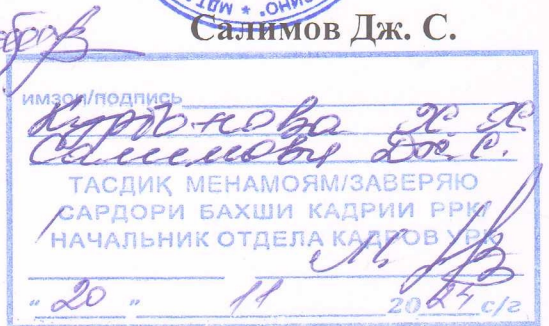 Салимов Дж. С.
имзои/подпись
Курбонова Х Х
Салимова Дж.С.
ТАСДИҚ МЕНАМОЯМ/ЗАВЕРЯЮ
САРДОРИ БАХШИ КАДРИИ РРК/
НАЧАЛЬНИК ОТДЕЛА КАДРОВ УРК
"20" 11 2024 с/г